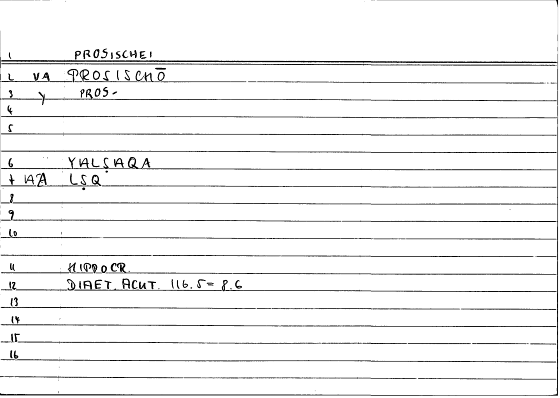 1 PROSISCHEI
2 VA PROSISCHŌ
3 Y PROS-
4
5
6 YALṢAQA
7 IAA LṢQ
8
9
10
11 HIPPOCR.
12 DIAET. ACUT. 116.5 = 8.6
13
14
15
16